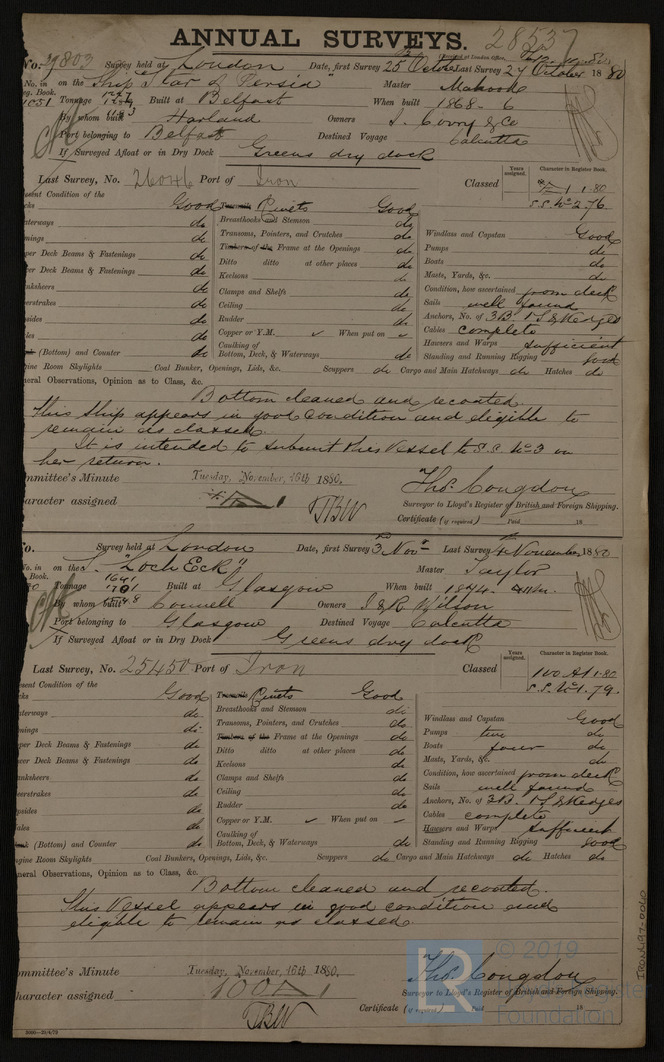 ANNUAL SURVEYS. 28537
No. 9803 Survey held at London Date, first Survey 25 October Last Survey 27 October 1880
No. in on the Ship "Star of Persia" Master Mahood
Book. Tonnage Built at Belfast When built 1868-6
By whom built Harland Owners J. Corry & Co
Port belonging to Belfast Destined Voyage Calcutta
If Surveyed Afloat or in Dry Dock Greens dry dock
Last Survey, No. 26046 Port of Iron Classed Years assigned. Character in Register Book.
1.80
S.S. No 2.76
sent Condition of the
Good Rivets Good
aterways do Breasthooks and Stemson do Windlass and Capstan Good
do Transoms, Pointers, and Crutches do Pumps do
per Deck Beams & Fastenings do Timbers of the Frame at the Openings do Boats do
er Deck Beams & Fastenings do Ditto ditto at other places do Masts, Yards, &c. do
nksheers do Keelsons do Condition, how ascertained from deck
erstrakes do Clamps and Shelfs do Sails well found
psides do Ceiling do Anchors, No. of 3B. 1S & Kedges
do Rudder do Cables complete
Copper or Y.M. ✓ When put on ✓ Hawsers and Warps sufficient
(Bottom) and Counter do Caulking of Bottom, Deck, & Waterways do Standing and Running Rigging good
gine Room Skylights Coal Bunker, Openings, Lids, &c. Scuppers do Cargo and Main Hatchways do Hatches do
neral Observations, Opinion as to Class, &c.
Bottom cleaned and recoated.
This Ship appears in good condition and eligible to
remain as classed.
It is intended to submit this Vessel to S.S. No 3 on
her return.
ommittee's Minute Tuesday, November, 16th 1880.
haracter assigned
TBW
Thos. Congdon
Surveyor to Lloyd's Register of British and Foreign Shipping.
Certificate (if required) Paid 18
o. Survey held at London Date, first Survey 3 Nov Last Survey 4 November 1880
No. in on the "Loch Eck" Master Taylor
Book. Tonnage 1701 Built at Glasgow When built 1874
By whom built Connell Owners J & R Wilson
Port belonging to Glasgow Destined Voyage Calcutta
If Surveyed Afloat or in Dry Dock Greens dry dock
Last Survey, No. 25450 Port of Iron Classed Years assigned. Character in Register Book.
100 A1 1.80
S.S. No 1.79.
sent Condition of the
Good Rivets Good
aterways do Breasthooks and Stemson do Windlass and Capstan Good
do Transoms, Pointers, and Crutches do Pumps two do
per Deck Beams & Fastenings do Timbers of the Frame at the Openings do Boats four do
er Deck Beams & Fastenings do Ditto ditto at other places do Masts, Yards, &c. do
nksheers do Keelsons do Condition, how ascertained from deck
erstrakes do Clamps and Shelfs do Sails well found
psides do Ceiling do Anchors, No. of 3B. 1S & Kedges
ales do Rudder do Cables complete
Copper or Y.M. ✓ When put on ✓ Hawsers and Warps sufficient
(Bottom) and Counter do Caulking of Bottom, Deck, & Waterways do Standing and Running Rigging good
ngine Room Skylights Coal Bunkers, Openings, Lids, &c. Scuppers do Cargo and Main Hatchways do Hatches do
neral Observations, Opinion as to Class, &c.
Bottom cleaned and recoated.
This Vessel appears in good condition and
eligible to remain as classed.
ommittee's Minute Tuesday, November, 16th 1880.
haracter assigned 100A1
TBW
Thos. Congdon
Surveyor to Lloyd's Register of British and Foreign Shipping.
Certificate (if required) Paid 18
© 2019
Foundation
IRON492-0040